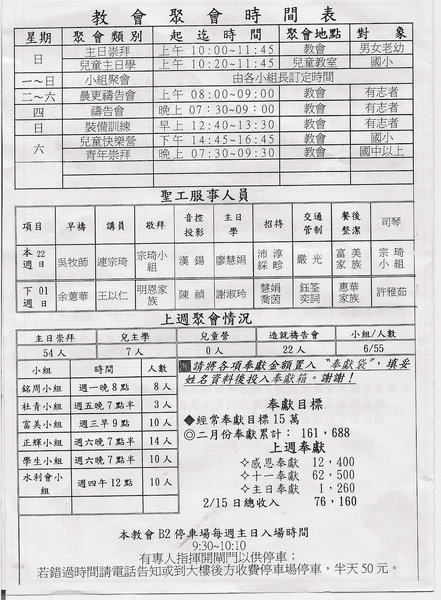 教會聚會時間表
星期 聚會類別 起迄時間 聚會地點 對象
日 主日崇拜 上午 10:00~11:45 教會 男女老幼
兒童主日學 上午 10:20~11:45 兒童教室 國小
一~日 小組聚會 由各小組長訂定時間
二~六 晨更禱告會 上午 08:00~09:00 教會 有志者
四 禱告會 晚上 07:30~09:00 教會 有志者
日 裝備訓練 早上 12:40~13:30 教會 有志者
六 兒童快樂營 下午 14:45~16:45 教會 國小
青年崇拜 晚上 07:30~09:30 教會 國中以上
聖工服事人員
項目 早禱 講員 敬拜 音控投影 主日學 招待 交通管制 餐後整潔 司琴
本22週日 吳牧師 連宗琦 宗琦小組 漢錫 廖慧娟 沛淳綵畛 嚴光 富美家族 宗琦小組
下01週日 余蕙華 王以仁 明恩家族 陳禎 謝淑玲 慧娟喬茵 鈺筌奕詞 惠華家族 許雅茹
上週聚會情況
主日崇拜 兒主學 兒童營 造就禱告會 小組/人數
54人 7人 0人 22人 6/55
小組 時間 人數
銘周小組 週一晚8點 8人
社青小組 週五晚7點半 3人
富美小組 週三早9點 10人
正輝小組 週六晚7點 14人
學生小組 週六晚7點半 10人
水利會小組 週四午12點 10人
請將各項奉獻金額置入“奉獻袋”,填妥
姓名資料後投入奉獻箱。謝謝!
奉獻目標
◆經常奉獻目標15萬
◎二月份奉獻累計: 161,688
上週奉獻
✧感恩奉獻 12,400
✧十一奉獻 62,500
✧主日奉獻 1,260
2/15日總收入 76,160
本教會B2停車場每週主日入場時間
9:30~10:10
有專人指揮開閘門以供停車;
若錯過時間請電話告知或到大樓後方收費停車場停車,半天50元。